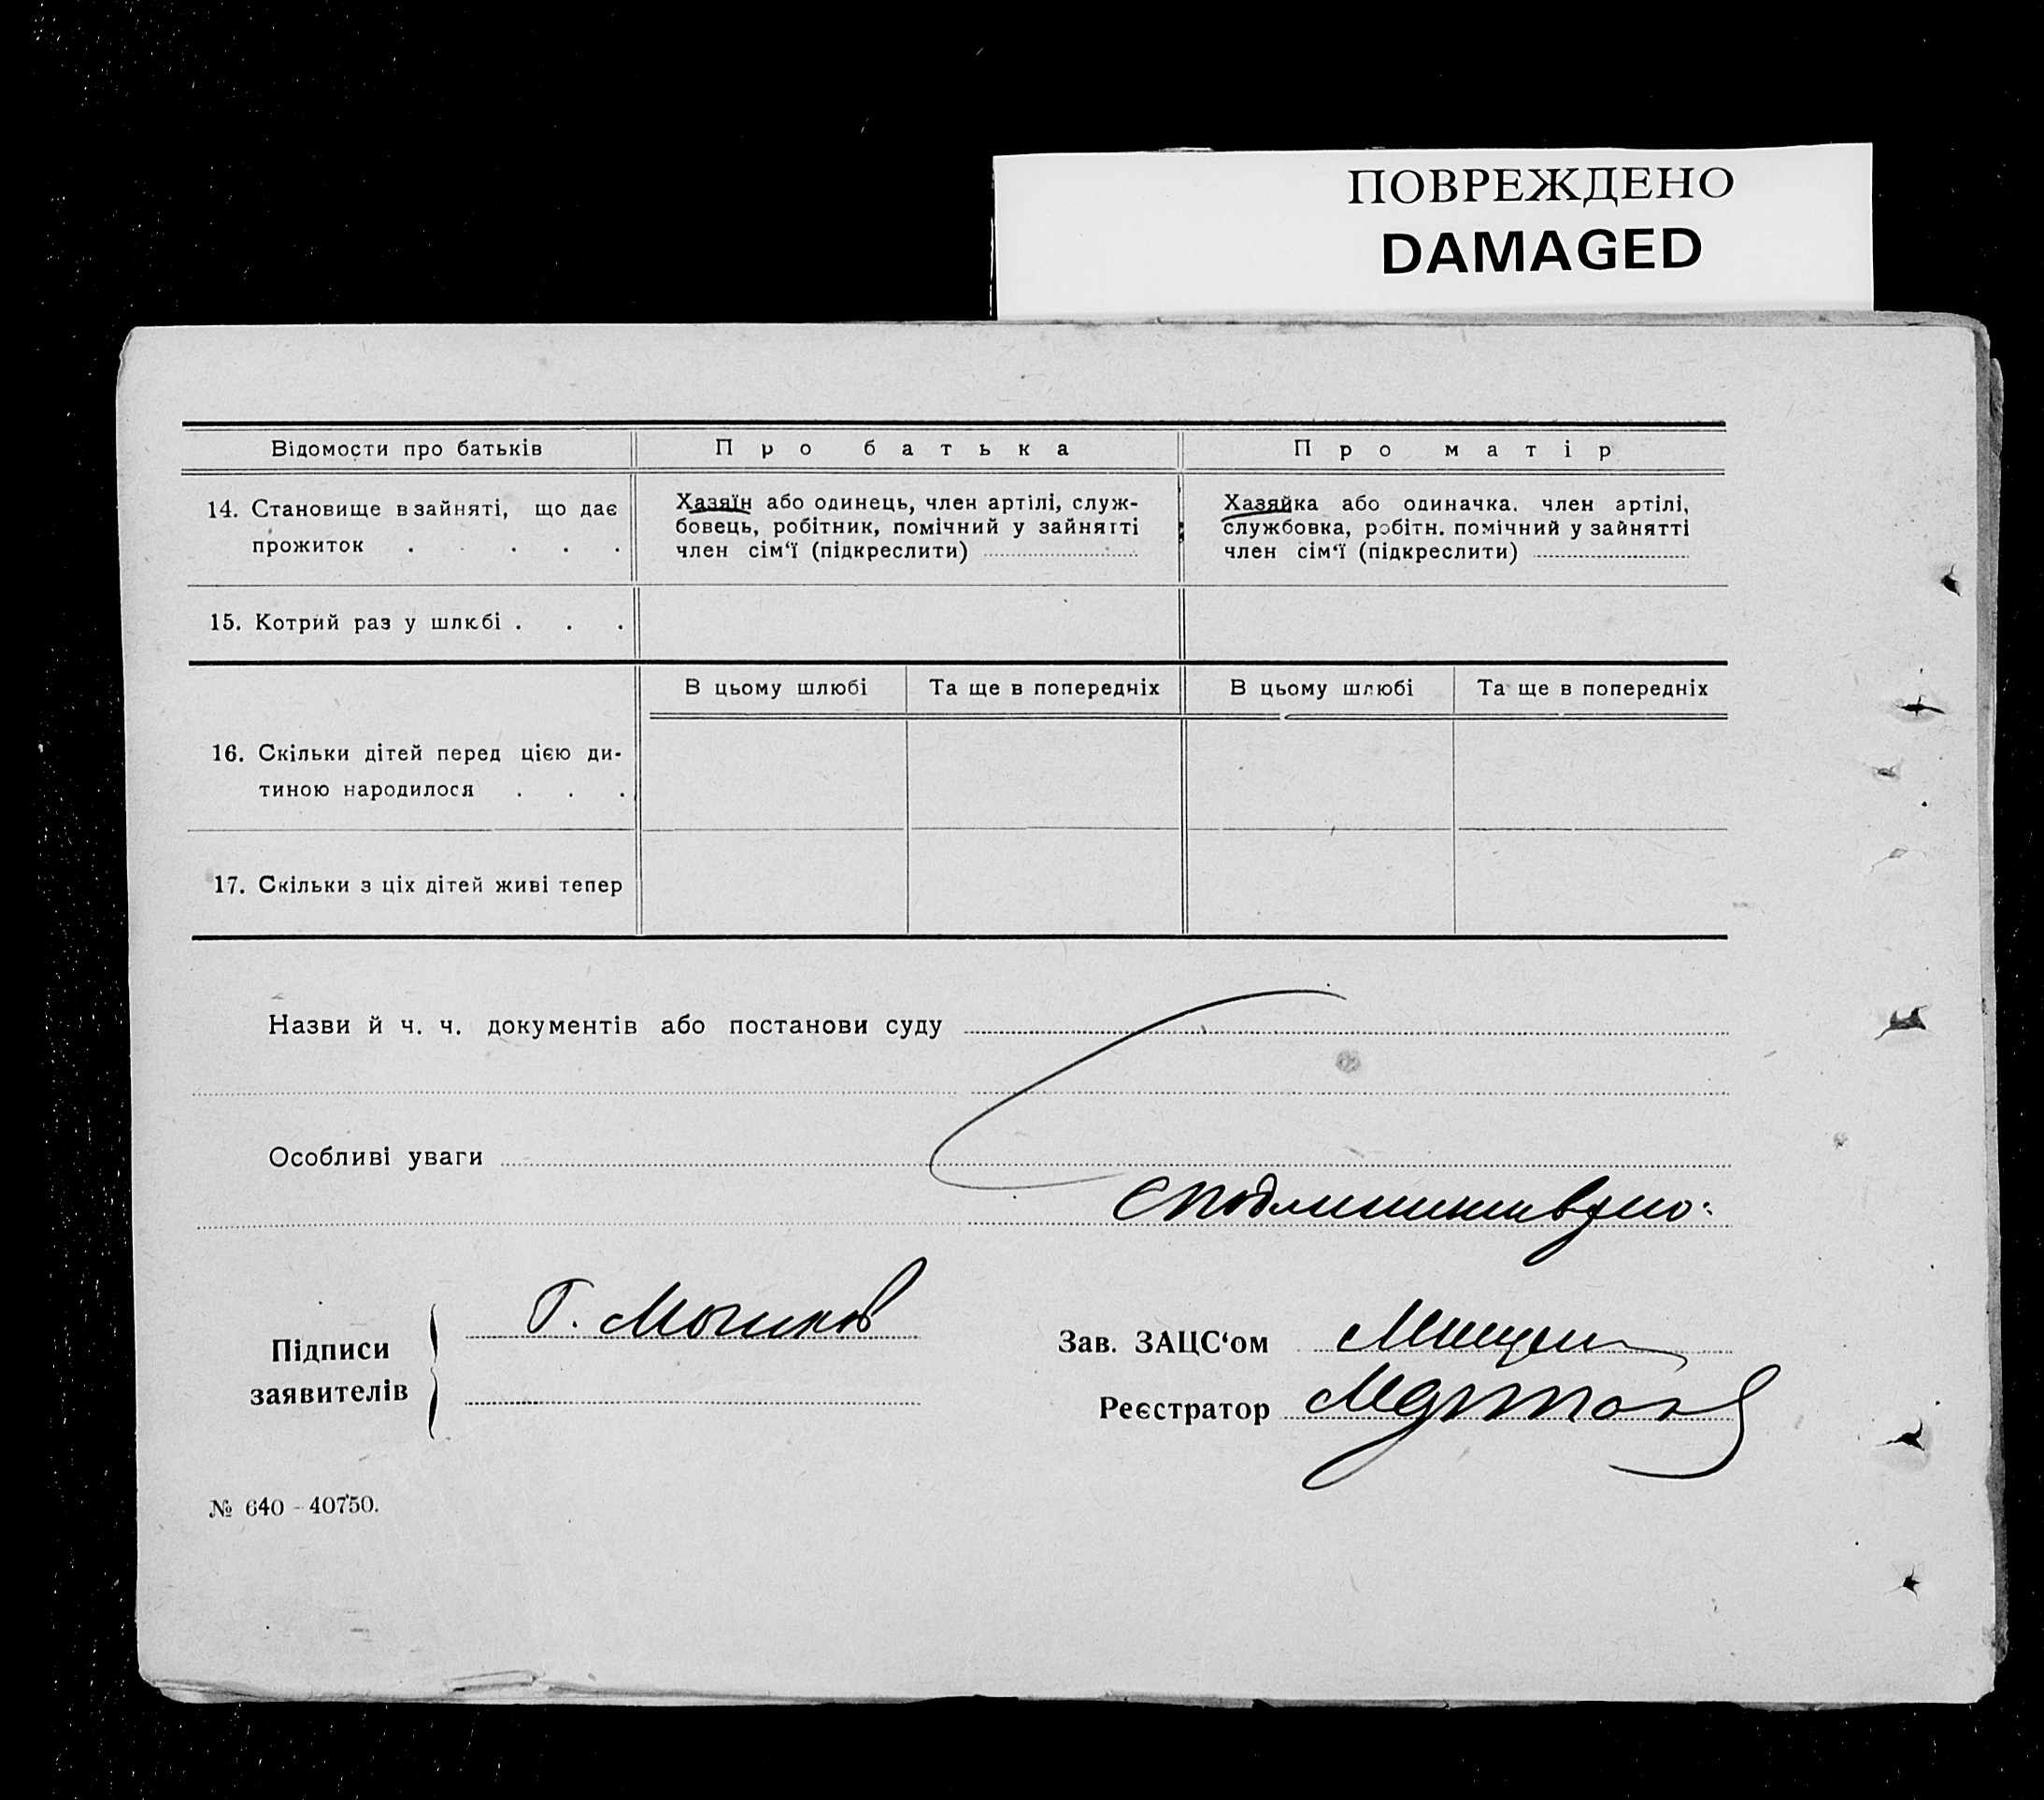 ПОВРЕЖДЕНО
DAMAGED
Відомости про батьків
Про батька
Про матір
14. Становище в зайняті, що дає
прожиток . . . .
Хазяїн або одинець, член артілі, служ-
бовець, робітник, помічний у зайнятті
член сім‘ї (підкреслити)
Хазяйка або одиначка. член артілі,
службовка, робітн. помічний у зайнятті
член сім‘ї (підкреслити)
15. Котрий раз у шлюбі . . .
В цьому шлюбі
Та ще в попередніх
В цьому шлюбі
Та ще в попередніх
16. Скільки дітей перед цією ди-
тиною народилося . . .
17. Скільки з ціх дітей живі тепер
Назви й ч. ч. документів або постанови суду
Особливі уваги
Підписи
заявителів
Г.
Зав. ЗАЦС‘ом
Реєстратор
№ 640 - 40750.